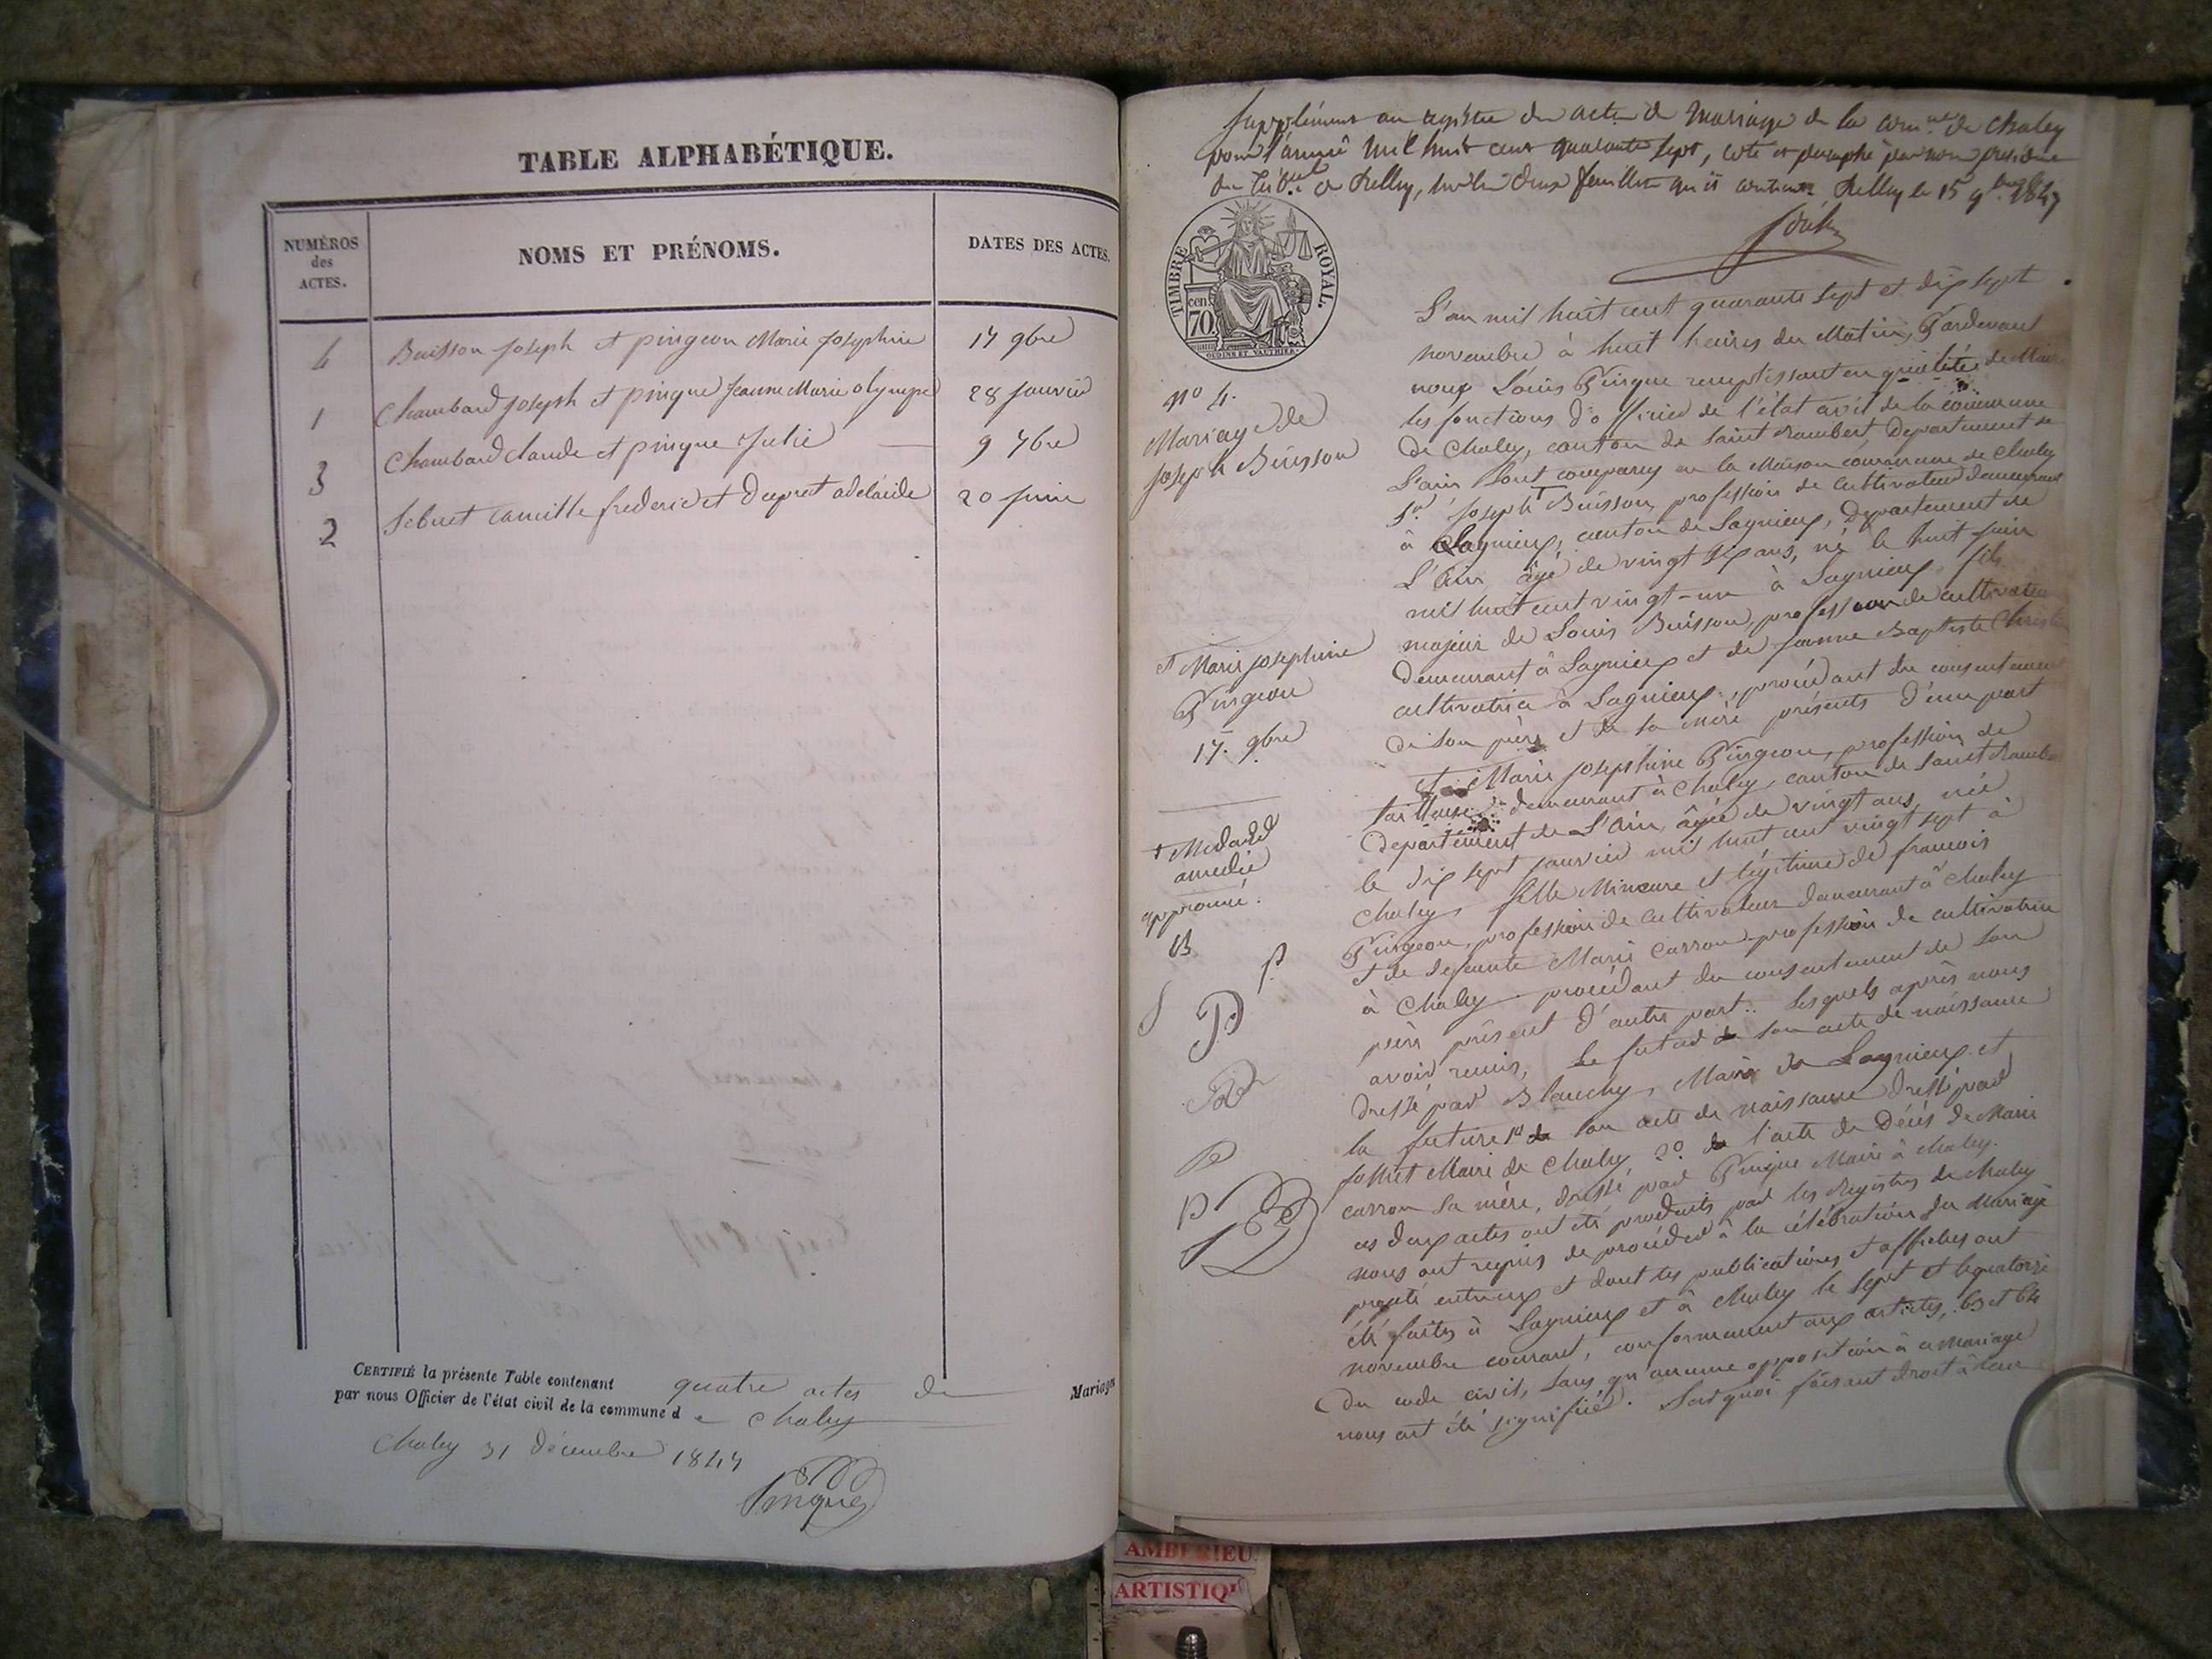 TABLE ALPHABÉTIQUE.
NUMÉROS des ACTES.
NOMS ET PRÉNOMS.
DATES DES ACTES.
4 Buisson Joseph et pingeon Marie Josephine 17 9bre
1 Chambard Joseph et pingue Jeanne Marie olympe 28 janvier
3 Chambard claude et pingue Julie 9 7bre
2 camille frederic et Dupret adelaide 20 juin
CERTIFIÉ la présente Table contenant quatre actes de Mariages
par nous Officier de l'état civil de la commune de Chaley
Chaley 31 décembre 1847
Pingue
Supplément au registre des actes de Mariage de la comune de Chaley
pour l'année mil huit cent quarante sept, coté et paraphé par nous président
du Tribal de Belley, sur les deux feuillets qu'il contient. Belley le 15 9bre 1847
TIMBRE ROYAL.
cen. 70.
OUDINE ET VAUTHIER
No 4.
Mariage de
Joseph Buisson
et Marie Josephine
Pingeon
17. 9bre
+ Medard
amedée
approuvé.
L'an mil huit cent quarante sept et dix sept
novembre à huit heures du Matin, Pardevant
nous Louis Pingue remplissant en qualité de Maire
les fonctions d'officier de l'état civil de la commune
de Chaley, canton de Saint Rambert, Departement de
L'ain sont comparus en la Maison commune de Chaley
1o. Joseph + Buisson, profession de cultivateur demeurant
à Lagnieux, canton de Lagnieux, Departement de
L'Ain âgé de vingt six ans, né le huit juin
mil huit cent vingt-un à Lagnieux, fils
majeur de Louis Buisson, profession de cultivateur
demeurant à Lagnieux et de Jeanne Baptiste
cultivatrice à Lagnieux, procédant du consentement
de son père et de sa mère présents D'une part
Et Marie Josephine Pingeon, profession de
tailleuse demeurant à Chaley, canton de Saint Rambert
Departement de L'Ain, âgée de vingt ans, née
le dix sept janvier mil huit cent vingt sept à
Chaley, fille Mineure et légitime de francois
Pingeon, profession de cultivateur demeurant à Chaley
et de defeunte Marie Carron profession de cultivatrice
à Chaley procédant du consentement de son
père présent D'autre part.. Lesquels après nous
avoir remis, Le futur de son acte de naissance
dressé par Blanchy, Maire de Lagnieux et
la future 1o de son acte de naissance dressé par
Maire de Chaley, 2o de l'acte de Décés de Marie
carron sa mère, dressé par Pingue Maire à Chaley.
ces deux actes ont été produits par les Registres de Chaley
nous ont requis de procéder à la célébration du Mariage
projeté entreux et dont les publications et affiches ont
été faites à Lagnieux et à Chaley le sept et le quatorze
novembre courant, conformement aux articles, 63 et 64
Du code civil, sans qu'aucune opposition à ce Mariage
nous ait été signifiée. Surquoi faisant droit à leur
AMBERIEU
ARTISTIQU